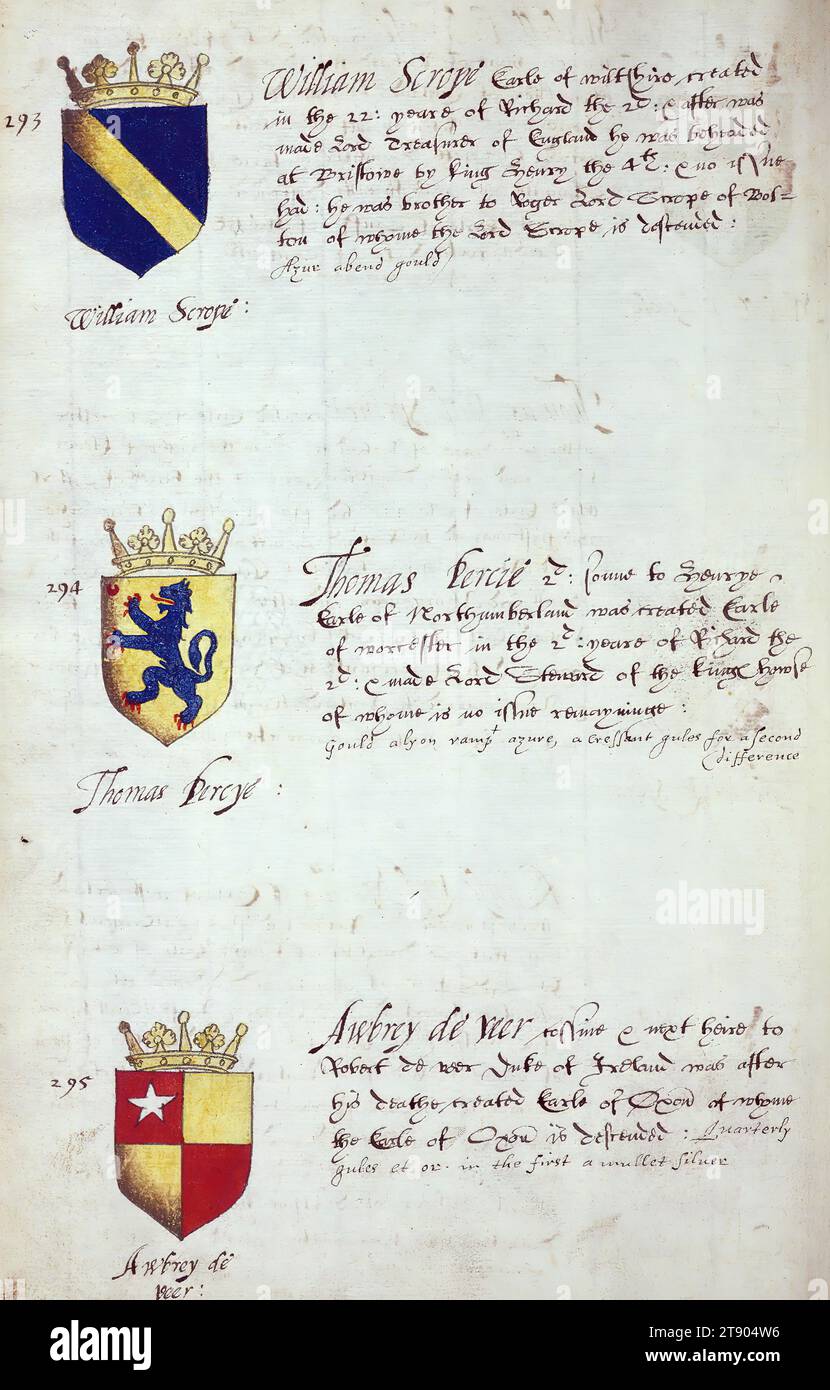 293
William Scrope Earle of wiltshire created
in the 22: yeare of Richard the 2d: & after was
made Lord Treasurer of England he was beheaded
at Bristowe by king Henry the 4th: & no issue
had: he was brother to Roger Lord Scrope of Bol-
ton of whome the Lord Scrope is descended:
Azur a bend gould
William Scrope:
294
Thomas Percie 2d: sonne to Henrye
Earle of Northumberland was created Earle
of worcester in the 2d: yeare of Richard the
2d: & made Lord Steward of the kings howse
of whome is no issue remayninge:
Gould a lyon rampt azure, a cressent gules for a second
difference
Thomas Percye:
295
Awbrey de veer cossine & next heire to
Robert de veer Duke of Ireland was after
his deathe created Earle of Oxon of whome
the Earle of Oxon is descended: Quarterly
gules et or. in the first a mullet silver
Awbrey de
veer:
alamy
alamy
Image ID: 2T904W6
www.alamy.com